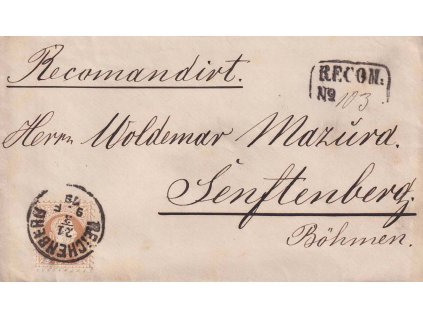 Recomandirt.
RECOM.
No 103
Herrn Woldemar Mazura.
Senftenberg
Böhmen.
REICHENBERG
21
9 F